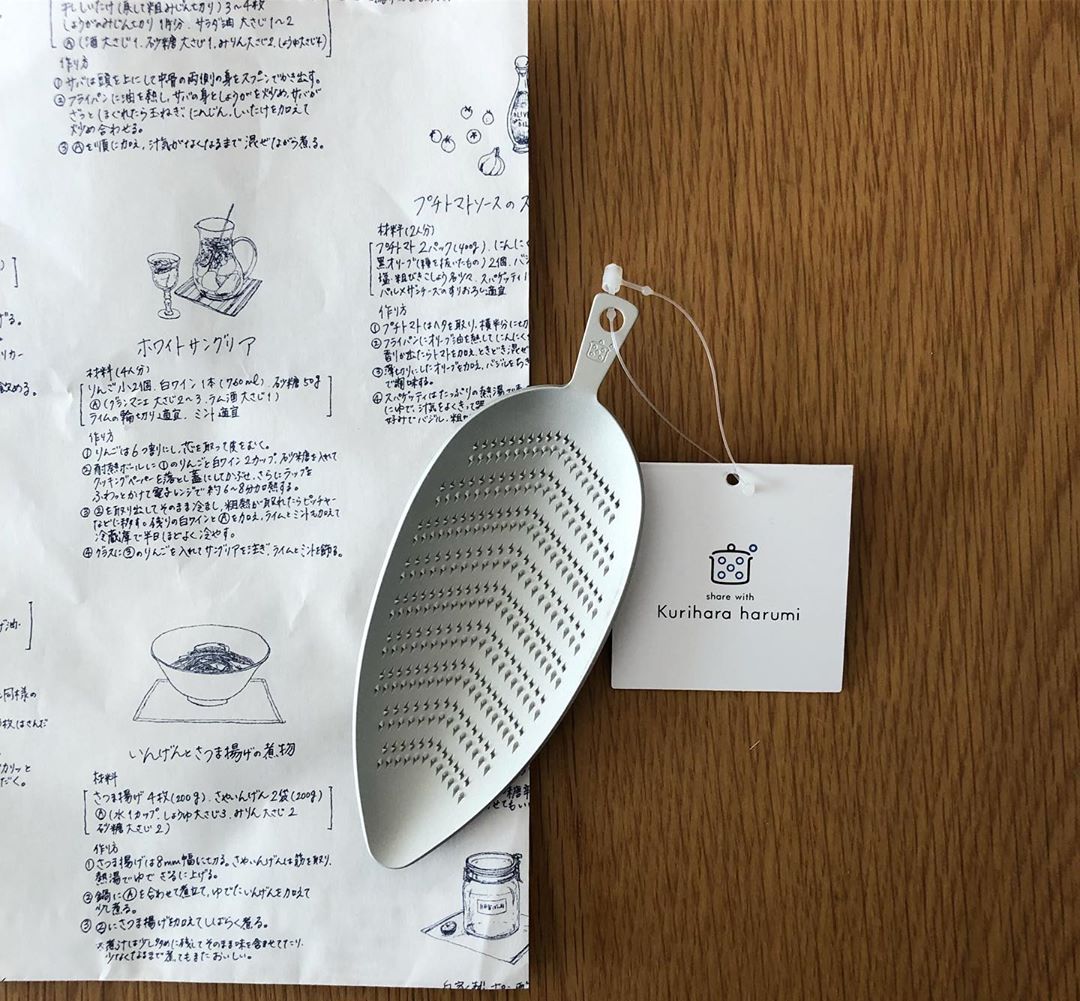 干ししいたけ(戻して粗みじん切り)3〜4枚
しょうがのみじん切り 1片分 . サラダ油 大さじ1〜2
Ⓐ(酒 大さじ1, 砂糖 大さじ1, みりん大さじ2, しょうゆ大さじ4)
作り方
①サバは頭を上にして中骨の両側の身をスプーンでかき出す。
②フライパンに油を熱し、サバの身としょうがを炒め、サバが
ざっとほぐれたら玉ねぎ、にんじん、しいたけを加えて
炒め合わせる。
③Ⓐを順に加え、汁気がなくなるまで混ぜながら煮る。
OLIVE
OIL
プチトマトソースのス
材料(2人分)
プチトマト 2パック(400g) . にんにく
黒オリーブ(種を抜いたもの) 2個, バジ
塩・粗びきこしょう各少々, スパゲッティ
パルメザンチーズのすりおろし適宜
作り方
①プチトマトはヘタを取り、横半分に切
②フライパンにオリーブ油を熱してにんにく
香りが出たらトマトを加え、ときどき混ぜ
③薄切りにしたオリーブを加え、バジルをちぎ
で調味する。
④スパゲッティはたっぷりの熱湯で
にゆで、汁気をよくきって
好みでバジル、粗
ホワイトサングリア
材料(4人分)
りんご 小2個, 白ワイン 1本(760ml) , 砂糖 50g
Ⓐ(グランマニエ 大さじ2〜3, ラム酒 大さじ1)
ライムの輪切り適宜, ミント 適宜
作り方
①りんごは6つ割にし、芯を取って皮をむく。
②耐熱ボールに①のりんごと白ワイン2カップ、砂糖を入れて
クッキングペーパーを落とし蓋にしてかぶせ、さらにラップを
ふわっとかけて電子レンジで約6〜8分加熱する。
③②を取り出してそのまま冷まし、粗熱が取れたらピッチャー
などに移す。残りの白ワインとⒶを加え、ライムとミントも加えて
冷蔵庫で半日ほどよく冷やす。
④グラスに③のりんごを入れてサングリアを注ぎ、ライムとミントを飾る。
げる。
リカー
飲める。
げ油・
同様の
枚はさんだ
カリッと
だく。
いんげんとさつま揚げの煮物
材料
さつま揚げ 4枚(200g) , さやいんげん 2袋(200g)
Ⓐ(水 1カップ, しょうゆ 大さじ3, みりん 大さじ2
砂糖 大さじ2)
作り方
①さつま揚げは8mm幅に切る。さやいんげんは筋を取り、
熱湯でゆで ざるに上げる。
②鍋にⒶを合わせて煮立て、ゆでたいんげんを加えて
少し煮る。
③②にさつま揚げを加えてしばらく煮る。
*煮汁は少し多めに残してそのまま味を含ませてたり、
少なくなるまで煮てもまたおいしい。
share with
Kurihara harumi